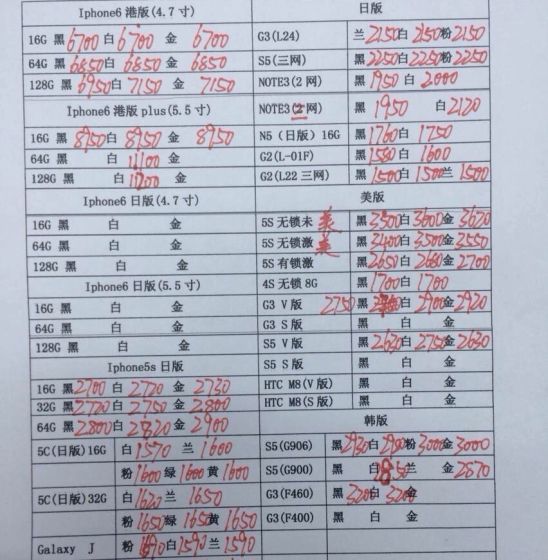 Iphone6 港版(4.7 寸)
16G 黑 6700 白 6700 金 6700
64G 黑 6850 白 6850 金 6850
128G 黑 6950 白 7150 金 7150
Iphone6 港版 plus(5.5 寸)
16G 黑 8950 白 8950 金 8950
64G 黑 白 11100 金
128G 黑 白 金
Iphone6 日版(4.7 寸)
16G 黑 白 金
64G 黑 白 金
128G 黑 白 金
Iphone6 日版(5.5 寸)
16G 黑 白 金
64G 黑 白 金
128G 黑 白 金
Iphone5s 日版
16G 黑 2700 白 2720 金 2730
32G 黑 2720 白 2750 金 2800
64G 黑 2800 白 金 2900
5C(日版)16G 白 1570 兰 1600
粉 1600 绿 1600 黄 1600
5C(日版)32G 白 1620 兰 1650
粉 1650 绿 1650 黄 1650
Galaxy J 粉 白 1590 兰 1590
日版
G3(L24) 兰 2150 白 2150 粉 2150
S5(三网) 黑 2250 白 2250 粉 2250
NOTE3(2 网) 黑 1950 白 2000
NOTE3(2 网) 黑 1950 白 2120
N5（日版）16G 黑 1760 白 1750
G2(L-01F) 黑 1580 白 1600
G2(L22 三网) 黑 1500 白 1500 兰 1500
美版
5S 无锁未 美 黑 3500 白 3600 金 3620
5S 无锁激 美 黑 3400 白 3500 金 3550
5S 有锁激 黑 2650 白 2680 金 2700
4S 无锁 8G 黑 1700 白 1700
G3 V 版 2750 黑 白 2900 金 2920
G3 S 版 黑 白 金
S5 V 版 黑 2630 白 2750 金 2630
S5 S 版 黑 白 金
HTC M8(V 版) 黑 白 金
HTC M8(S 版) 黑 白 金
韩版
S5(G906) 黑 2930 白 粉 3000 金 3000
S5(G900) 黑 白 兰 金 2870
G3(F460) 黑 3200 白 金
G3(F400) 黑 白 金